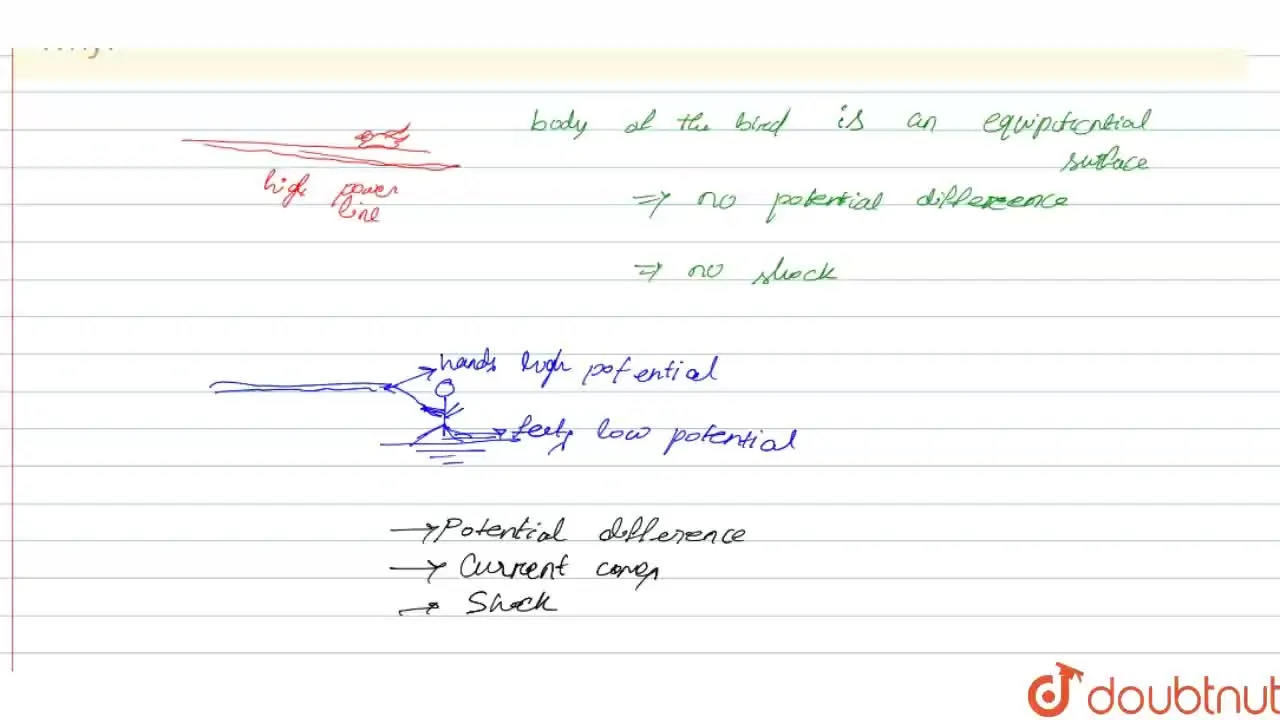 body of the bird is an equipotential
surface
high power
line
=> no potential difference
=> no shock
hands high potential
feet low potential
→ Potential difference
→ Current
→ Shock
doubtnut